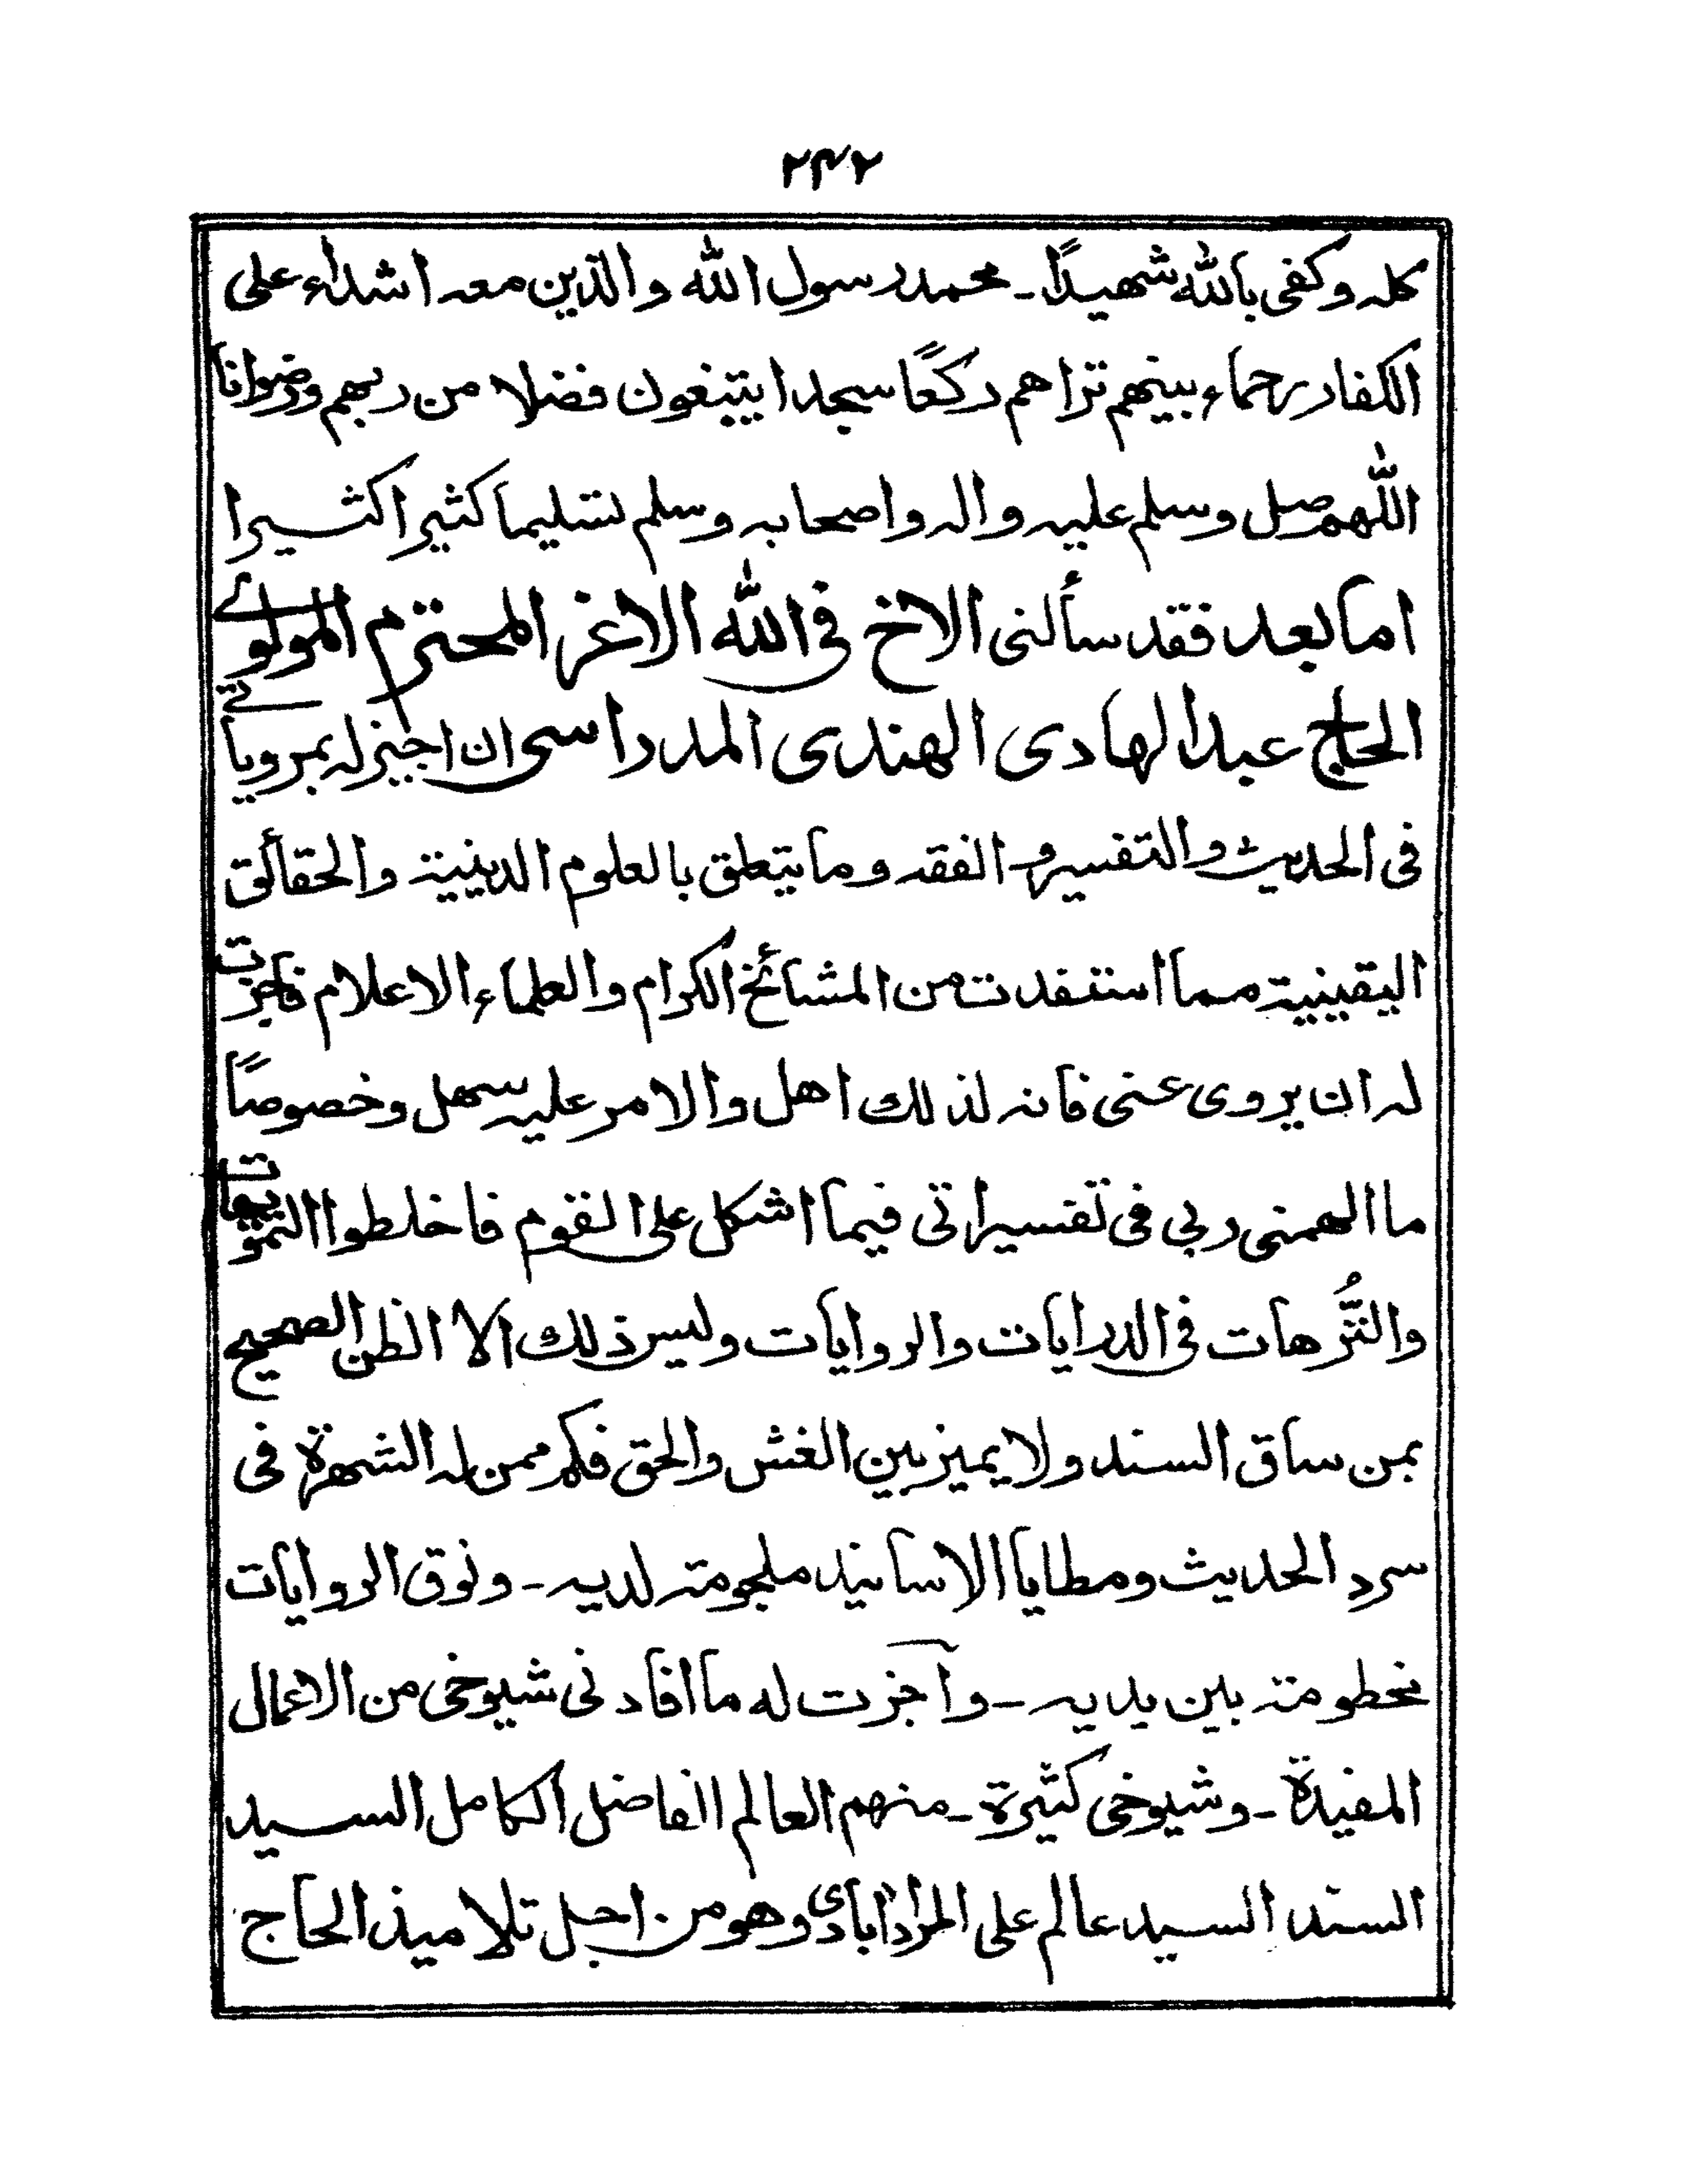 ۲۴۲
كله وكفى بالله شهيدًا ۔ محمد رسول الله والذين معه اشداء على
الكفار رحماء بينهم تراهم ركعًا سجدا يبتغون فضلا من ربهم ورضوانا
اللهم صل وسلم عليه واله واصحابه وسلم تسليما كثيرا كثيرا
اما بعد فقد سألنى الاخ فى الله الاغر المحترم المولوے
الحاج عبد الهادى الهندى المدراسى ان اجيز له بمروياتے
فى الحديث والتفسير والفقه وما يتعلق بالعلوم الدينية والحقائق
اليقينية مما استفدت من المشائخ الكرام والعلماء الاعلام فاجزت
له ان يروى عنى فانه لذلك اهل والامر عليه سهل وخصوصًا
ما الهمنى ربى فى تفسيراتى فيما اشكل على القوم فاخلطوا التمويهات
والتُّرهات فى الدرايات والروايات وليس ذلك الا الظن الصحيح
بمن ساق السند ولا يميز بين الغش والحق فكم ممن له الشهرة فى
سرد الحديث ومطايا الاسانيد ملجومة لديه ۔ ونوق الروايات
مخطومة بين يديه ۔ وآجزت له ما افادنى شيوخى من الاعمال
المفيدة ۔ وشيوخى كثيرة ۔ منهم العالم الفاضل الكامل السيد
السند السيد عالم على المرادابادى وهو من اجل تلاميذ الحاج